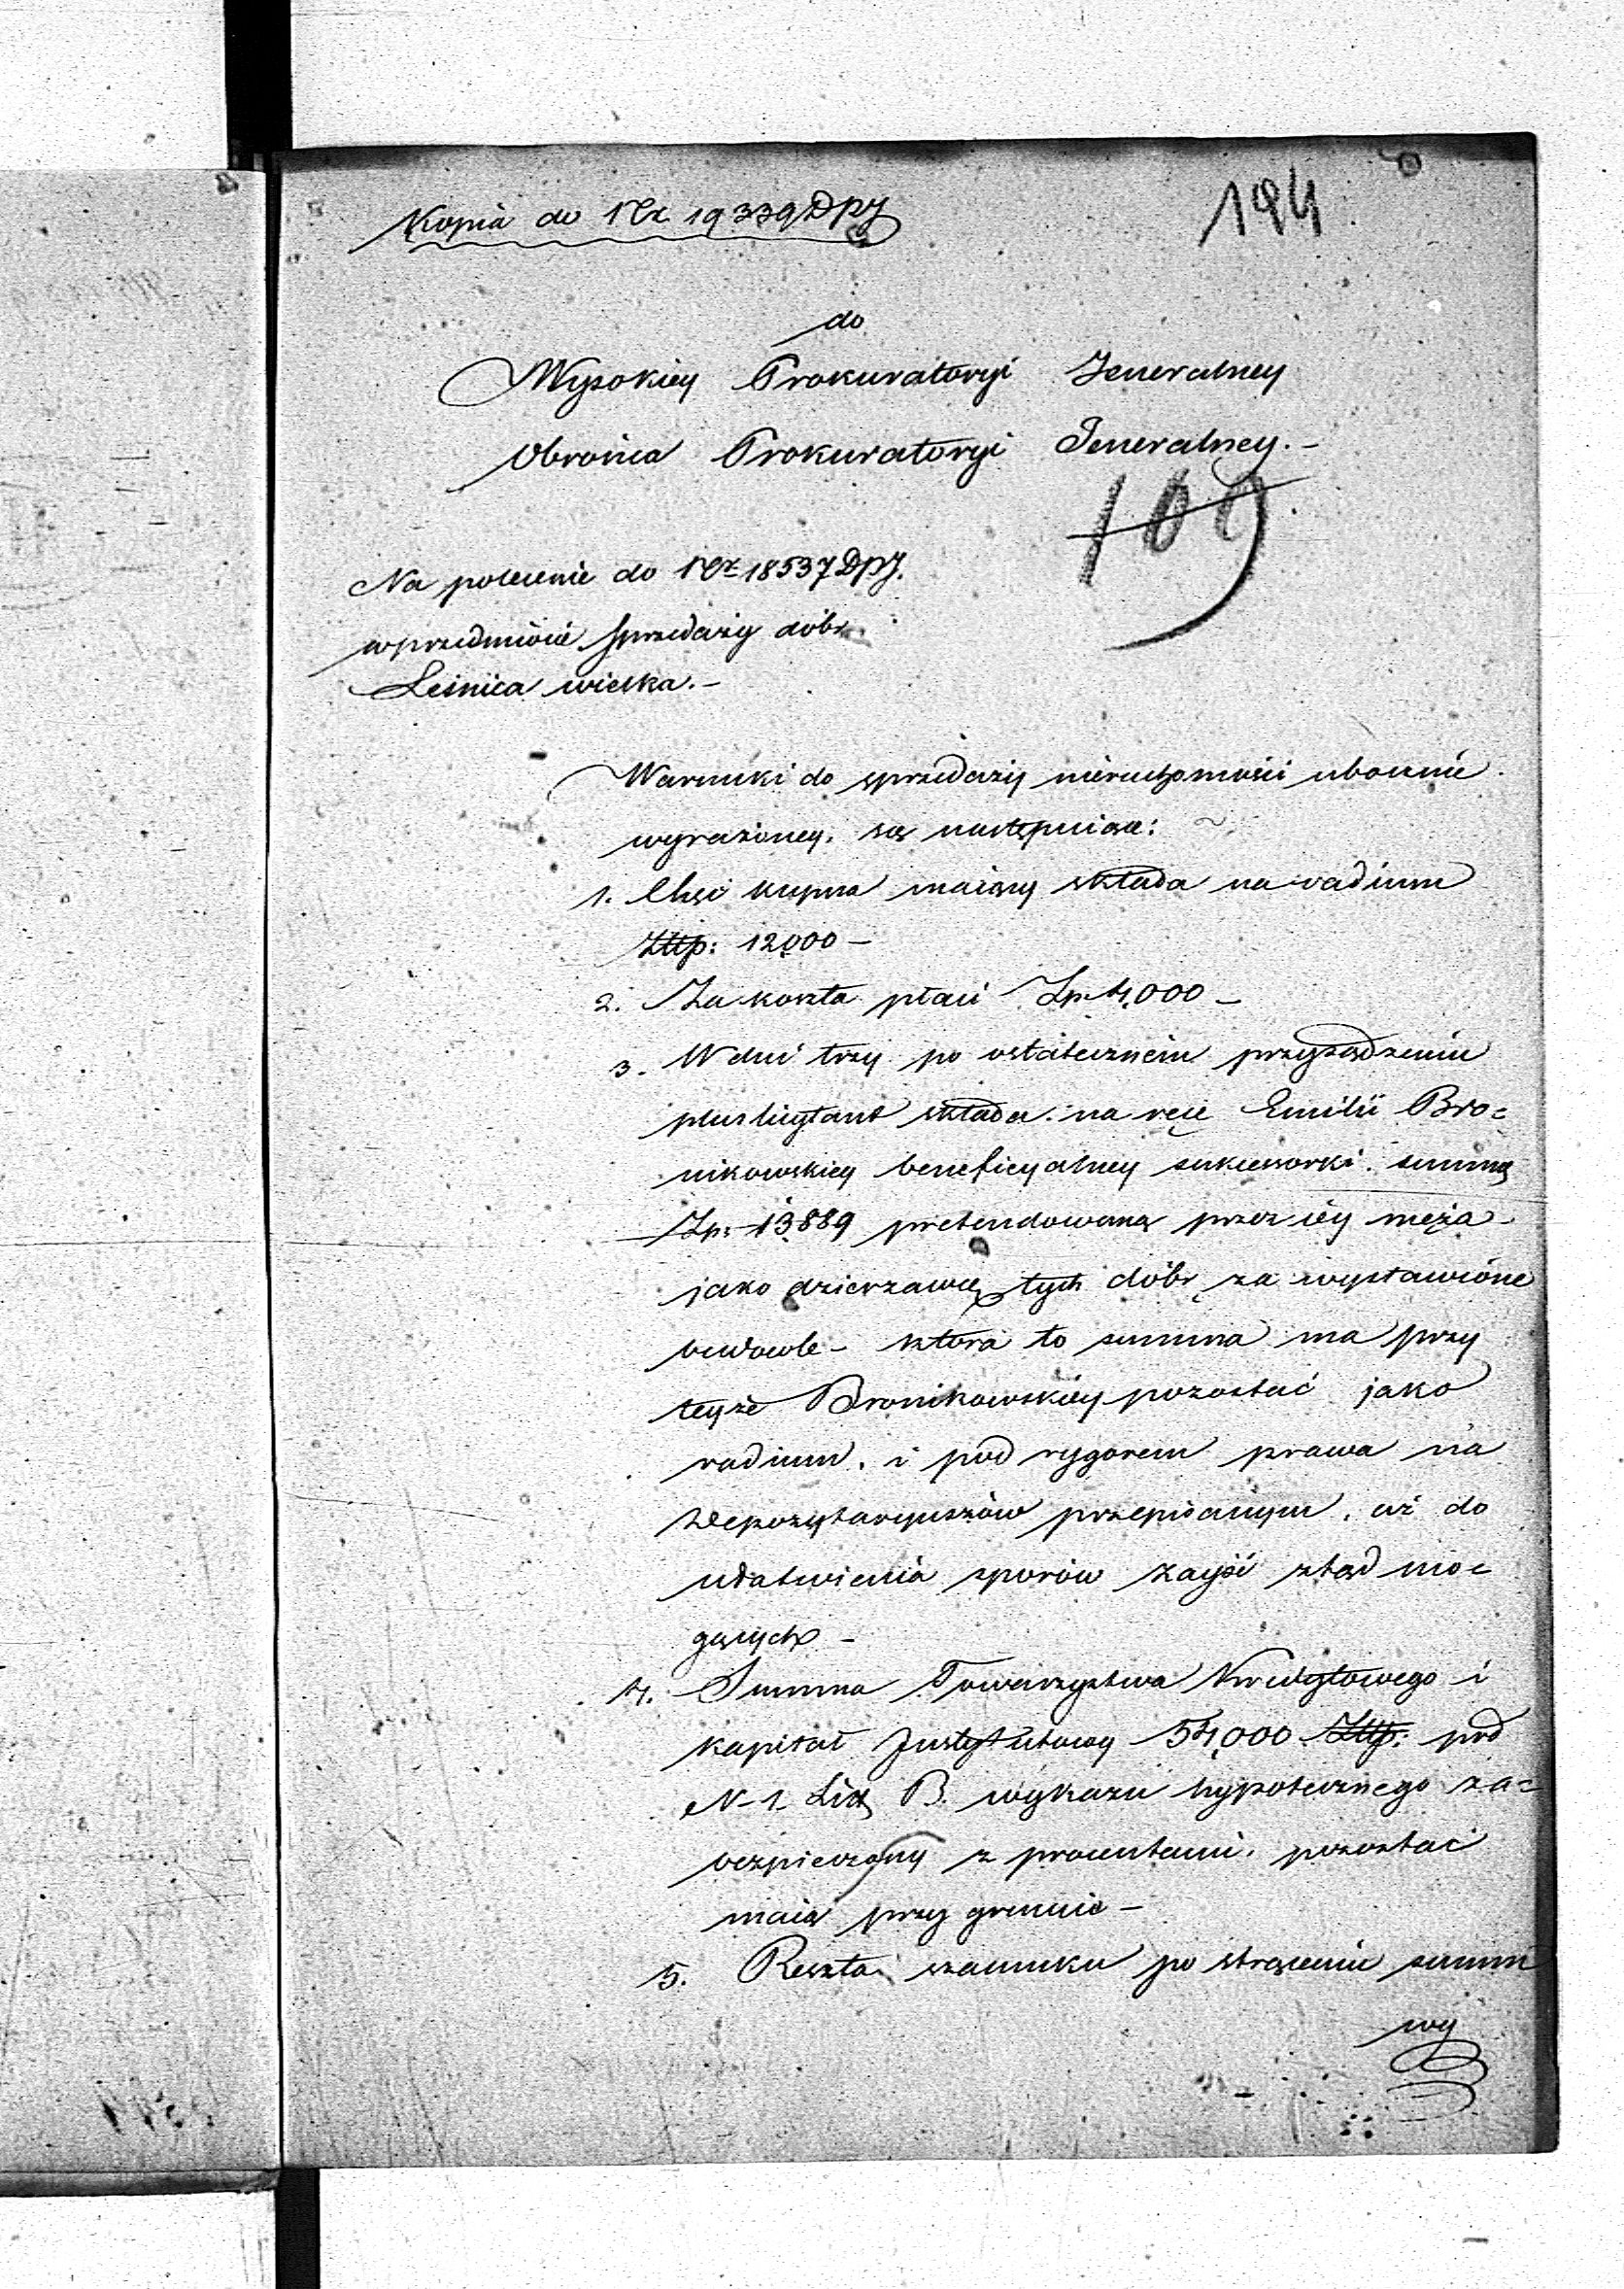 Kopia do Nra 19339 DPJ
194
do
Wysokiey Prokuratoryi Jeneralney
Obrońca Prokuratoryi Jeneralney.–
169
Na polecenie do Nra 18537 DPJ.
w przedmiocie sprzedaży dóbr
Leśnica wielka.–
Warunki do sprzedaży nieruchomości ubocznie
wyrażoney, są następuiące:
1. Chęć kupna maiący składa na vadium
Złłp: 12,000 –
2. Za koszta płaci Zp. 4,000 –
3. W dni trzy po ostatecznem przysądzeniu
pluslicytant składa na ręce Emilii Bro=
nikowskiey beneficyalney sukcessorki summę
Zp: 13,889 pretendowaną przez iéy męża
jako dzierzawcę tych dóbr za wystawione
budowle – która to summa ma przy
teyże Bronikowskiéy pozostać jako
vadium, i pod rygorem prawa na
Depozytaryuszów przepisanym, aż do
ułatwienia sporów zayść ztąd mo=
gących –
4. Summa Towarzystwa Kredytowego i
kapitał Instytutowy 54,000 Złłp: pod
N–1 Lit B. wykazu hypotecznego za=
bezpieczony z procentami, pozostać
maią przy gruncie –
5. Reszta szacunku po strąceniu summ
wy